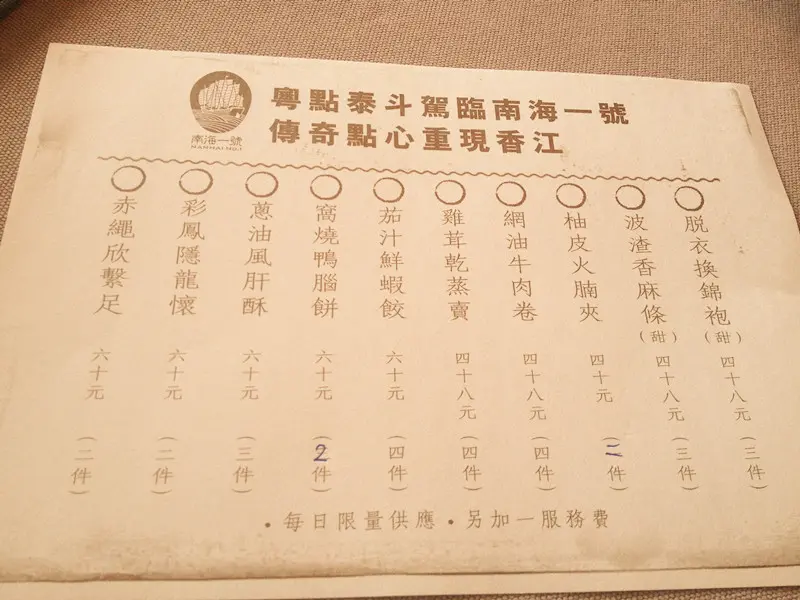 粵點泰斗駕臨南海一號
傳奇點心重現香江
南海一號
NANHAI NO.1
脫衣換錦袍(甜) 四十八元 (三件)
波渣香麻條(甜) 四十八元 (三件)
柚皮火腩夾 四十元 (二件)
網油牛肉卷 四十八元 (四件)
雞茸乾蒸賣 四十八元 (四件)
茄汁鮮蝦餃 六十元 (四件)
窩燒鴨腦餅 六十元 (2件)
蔥油風肝酥 六十元 (三件)
彩鳳隱龍懷 六十元 (二件)
赤繩欣繫足 六十元 (二件)
•每日限量供應•另加一服務費